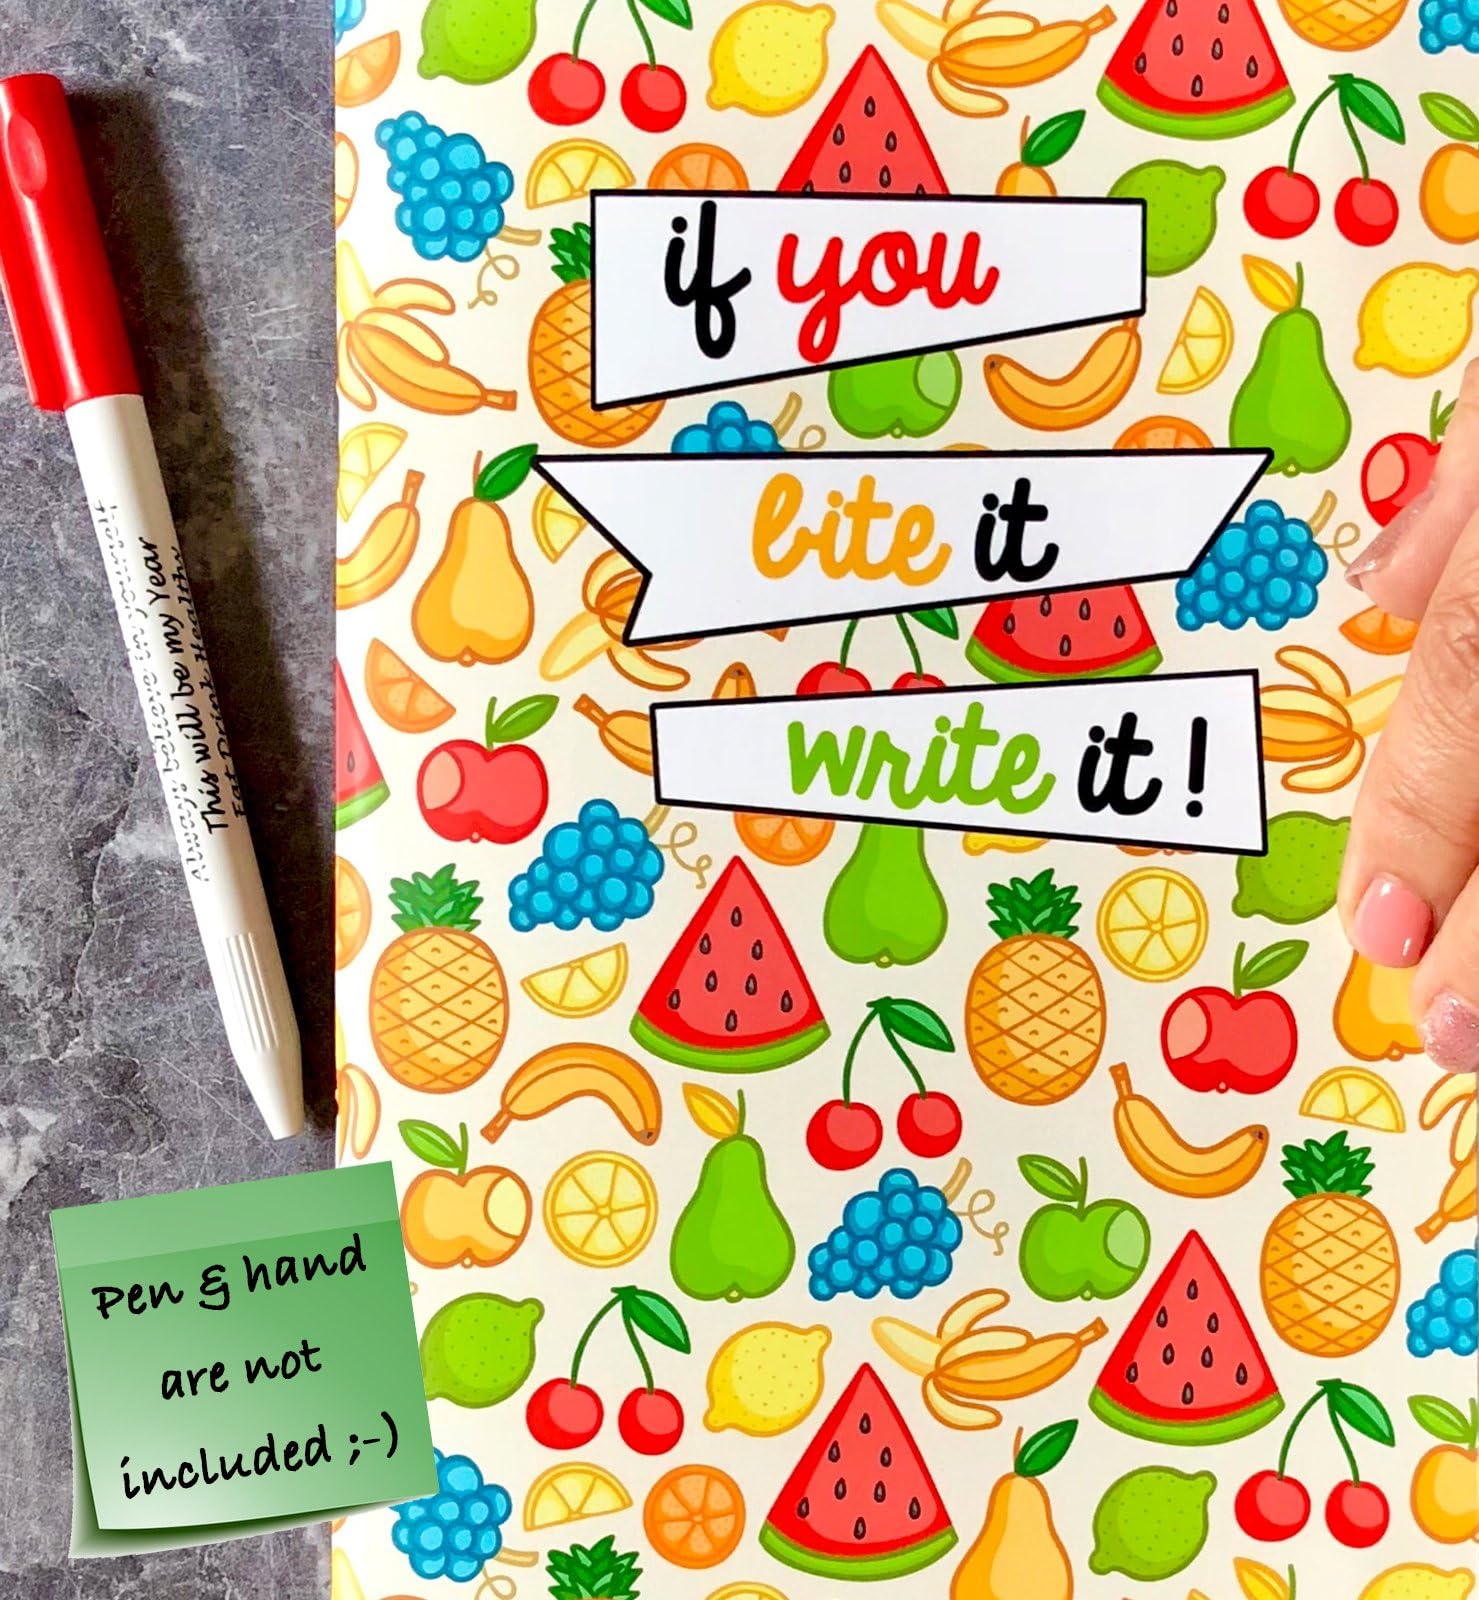 if you
bite it
write it!
Always believe in yourself
This will be my Year
Eat Drink Healthy
Pen & hand
are not
included ;-)